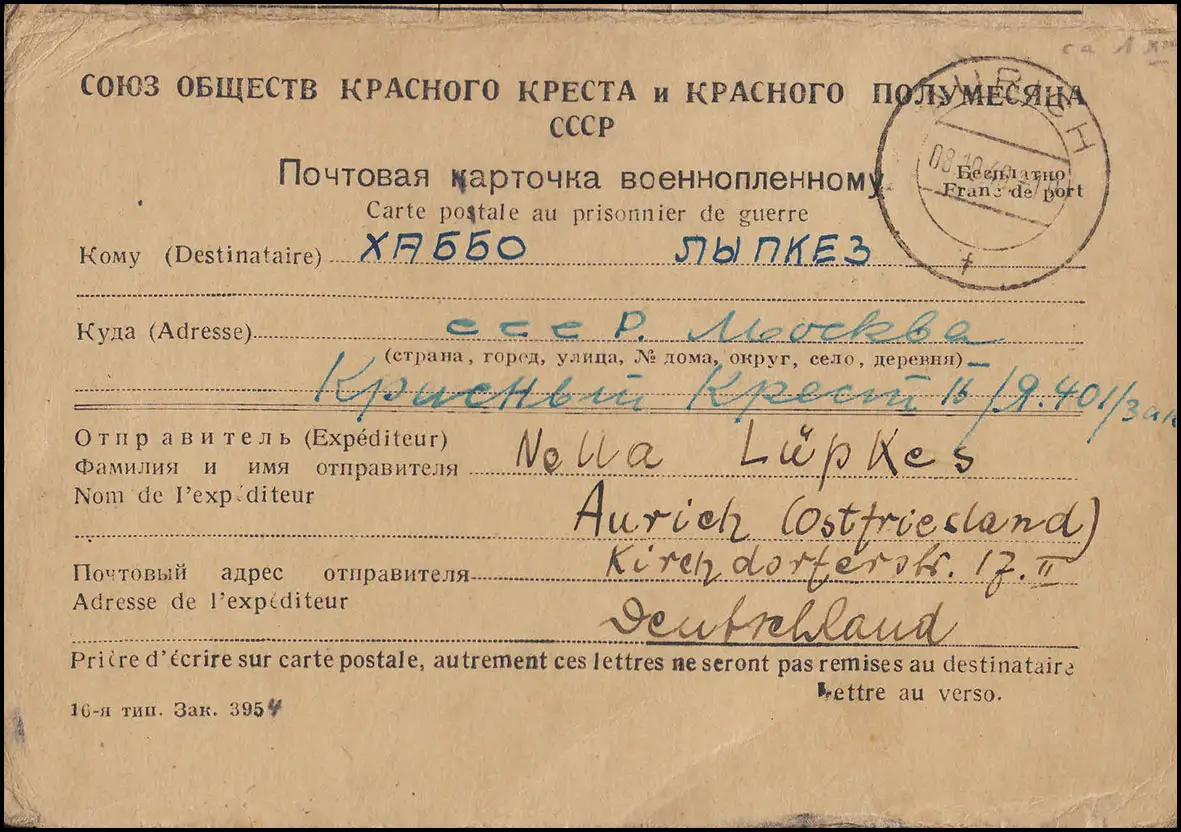 СОЮЗ ОБЩЕСТВ КРАСНОГО КРЕСТА и КРАСНОГО ПОЛУМЕСЯЦА
СССР
Почтовая карточка военнопленному
Бесплатно
Franc de port
Carte postale au prisonnier de guerre
Кому (Destinataire) ХАББО ЛЫПКЕЗ
Куда (Adresse) СССР. Москва
(страна, город, улица, № дома, округ, село, деревня)
Красный Крест п/Я. 401/
Отправитель (Expéditeur)
Фамилия и имя отправителя Nella Lüpkes
Nom de l'expéditeur
Aurich (Ostfriesland)
Почтовый адрес отправителя Kirchdorferstr. 17. II
Adresse de l'expéditeur
Deutschland
Prière d'écrire sur carte postale, autrement ces lettres ne seront pas remises au destinataire
Lettre au verso.
16-я тип. Зак. 3954